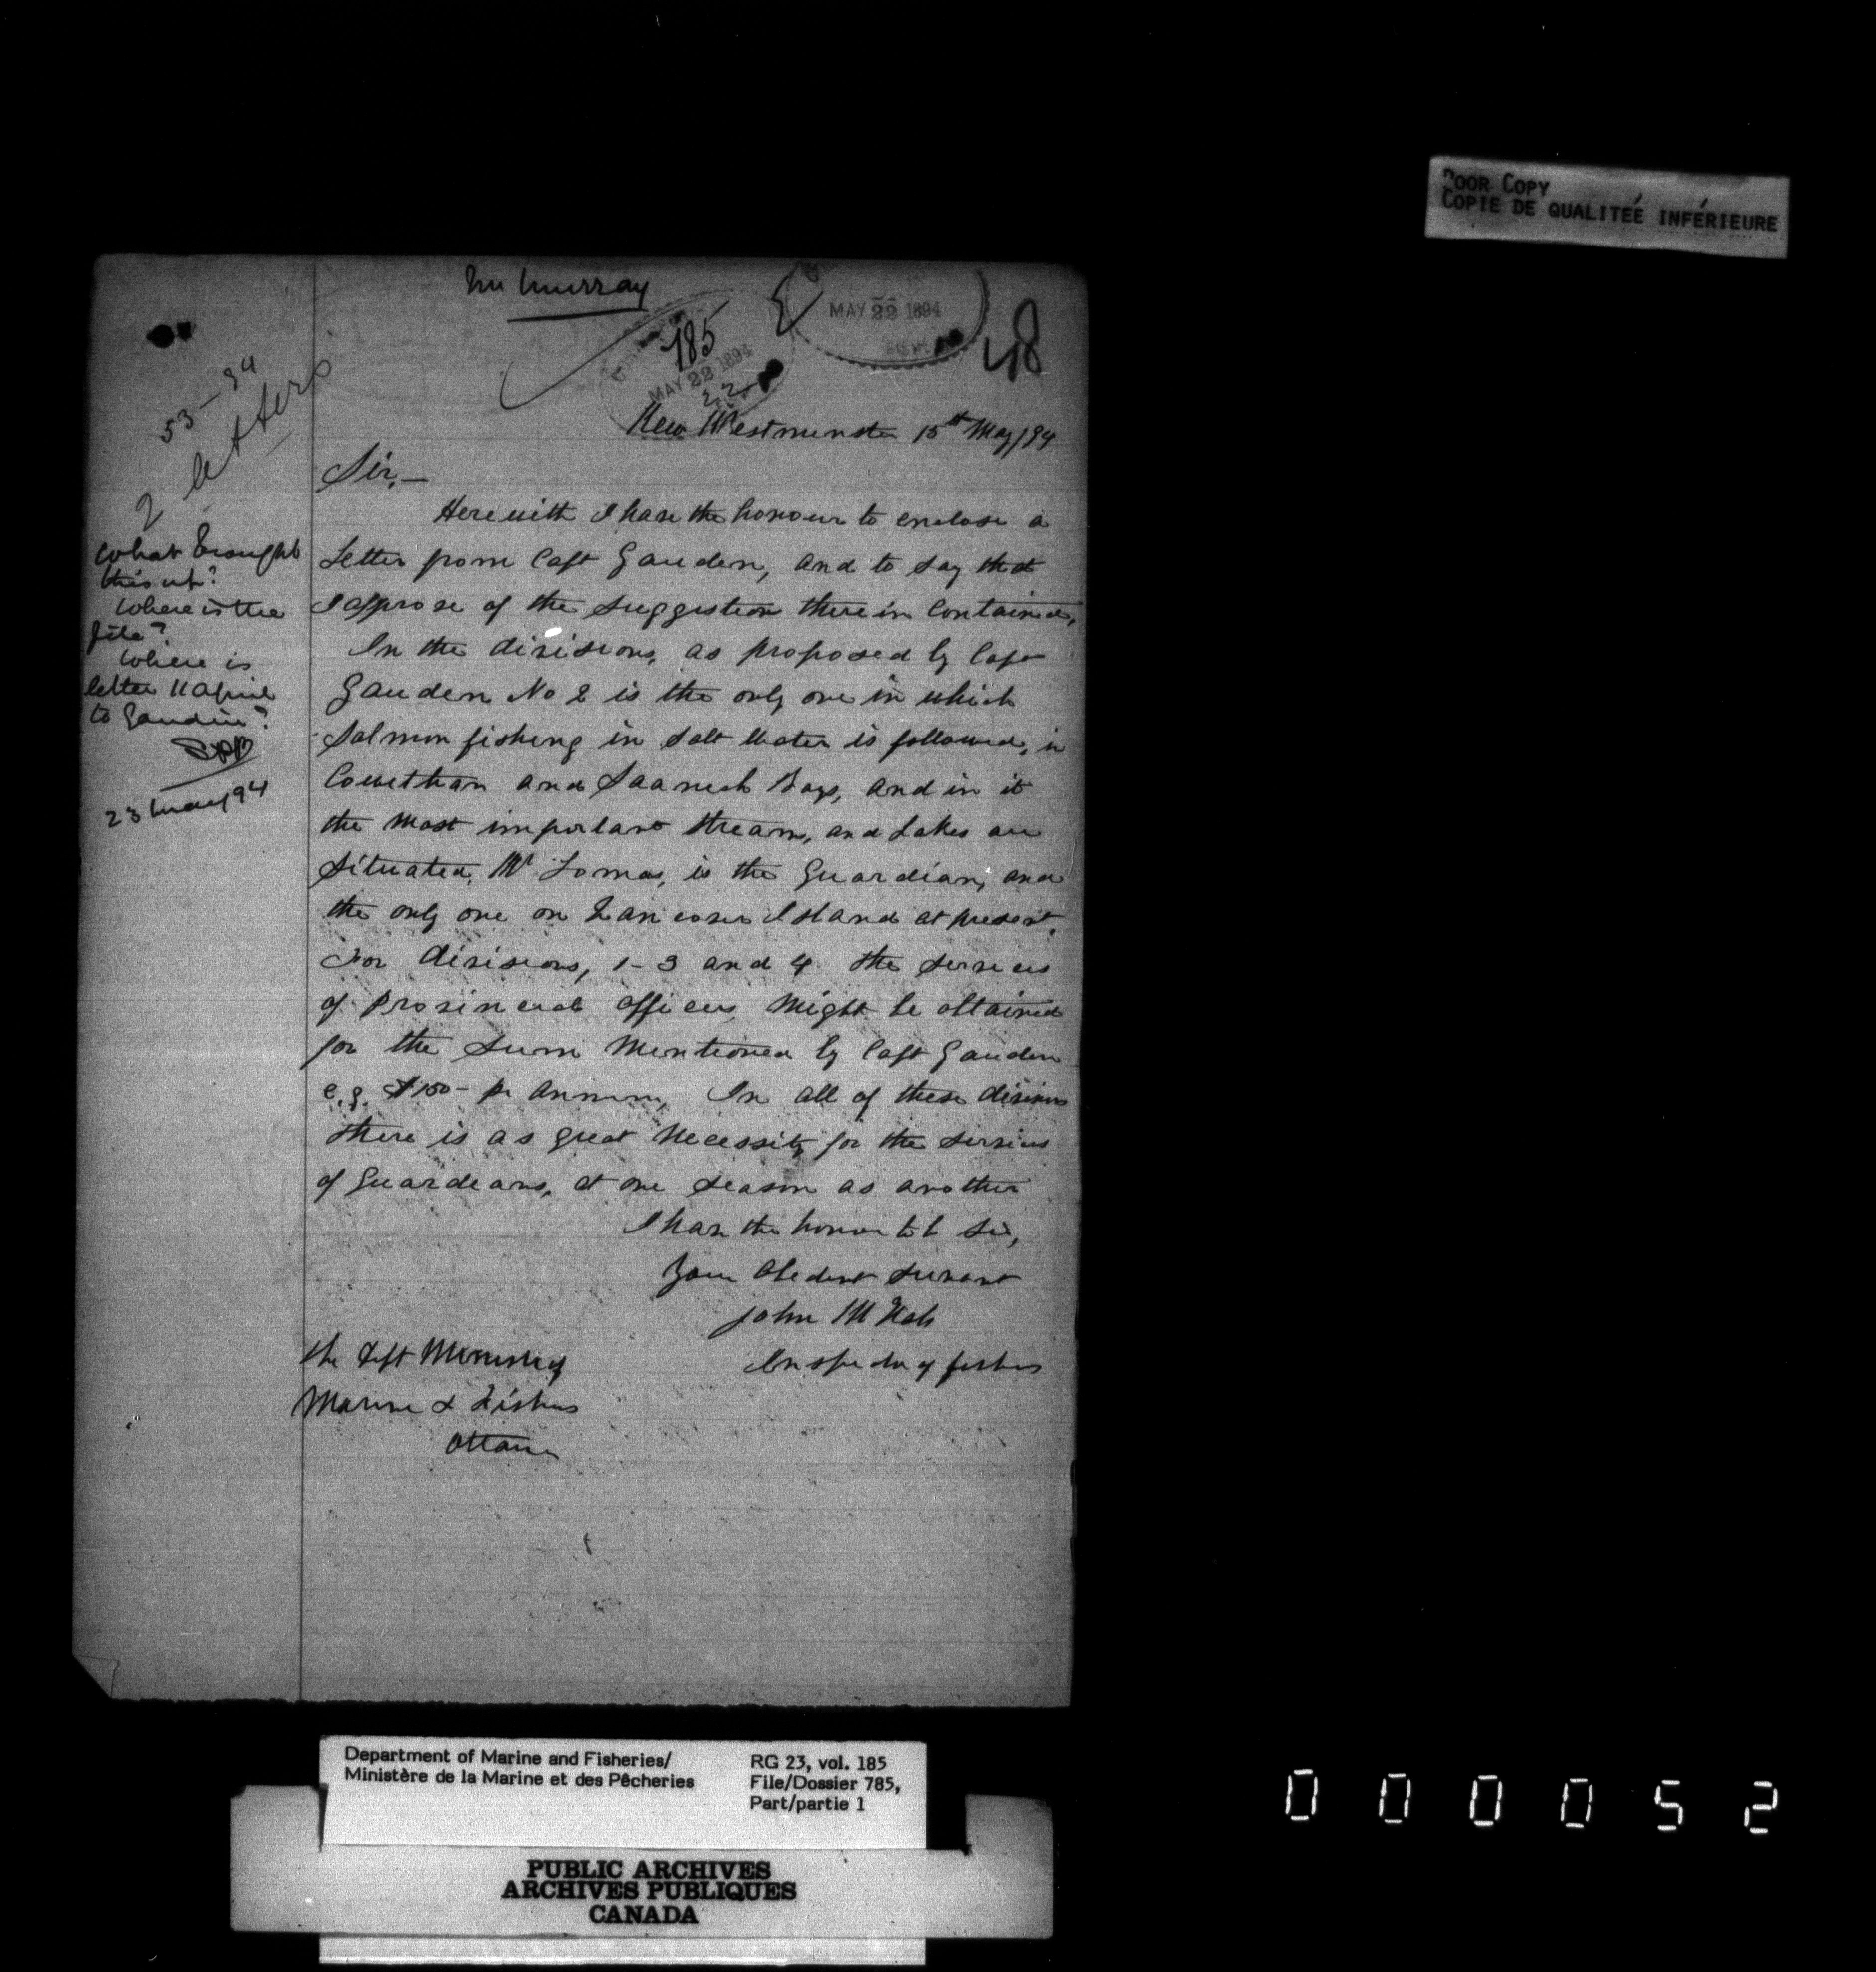 POOR COPY
COPIE DE QUALITEÉ INFÉRIEURE
Mr Murray
785
MAY 22 1894
MAY 22 1894
48
53-94
2 letters
New Westminster 15th May/94
Sir,—
Herewith I have the honour to enclose a
Letter from Capt Gauden, and to say that
I approve of the suggestion therein contained,
In the divisions, as proposed by Capt
Gauden No 2 is the only one in which
Salmon fishing in Salt Water is followed, in
Cowichan and Saanich Bays, and in it
the most important streams, and Lakes are
situated, Mr Lomas, is the Guardian, and
the only one on Vancouver Island at present.
For divisions, 1-3 and 4 the services
of Provincial officers might be obtained
for the sum mentioned by Capt Gauden
e.g. $150- pr annum, In all of these divisions
there is as great necessity for the services
of Guardians, at one season as another
I have the honor to be Sir,
Your Obedient Servant
John McNab
Inspector of fisheries
The Dept Minister of
Marine & Fisheries
Ottawa
What brought
this up?
Where is the
file?
Where is
letter 11 April
to Gaudin?
23 May 94
Department of Marine and Fisheries/
Ministère de la Marine et des Pêcheries
RG 23, vol. 185
File/Dossier 785,
Part/partie 1
PUBLIC ARCHIVES
ARCHIVES PUBLIQUES
CANADA
000052